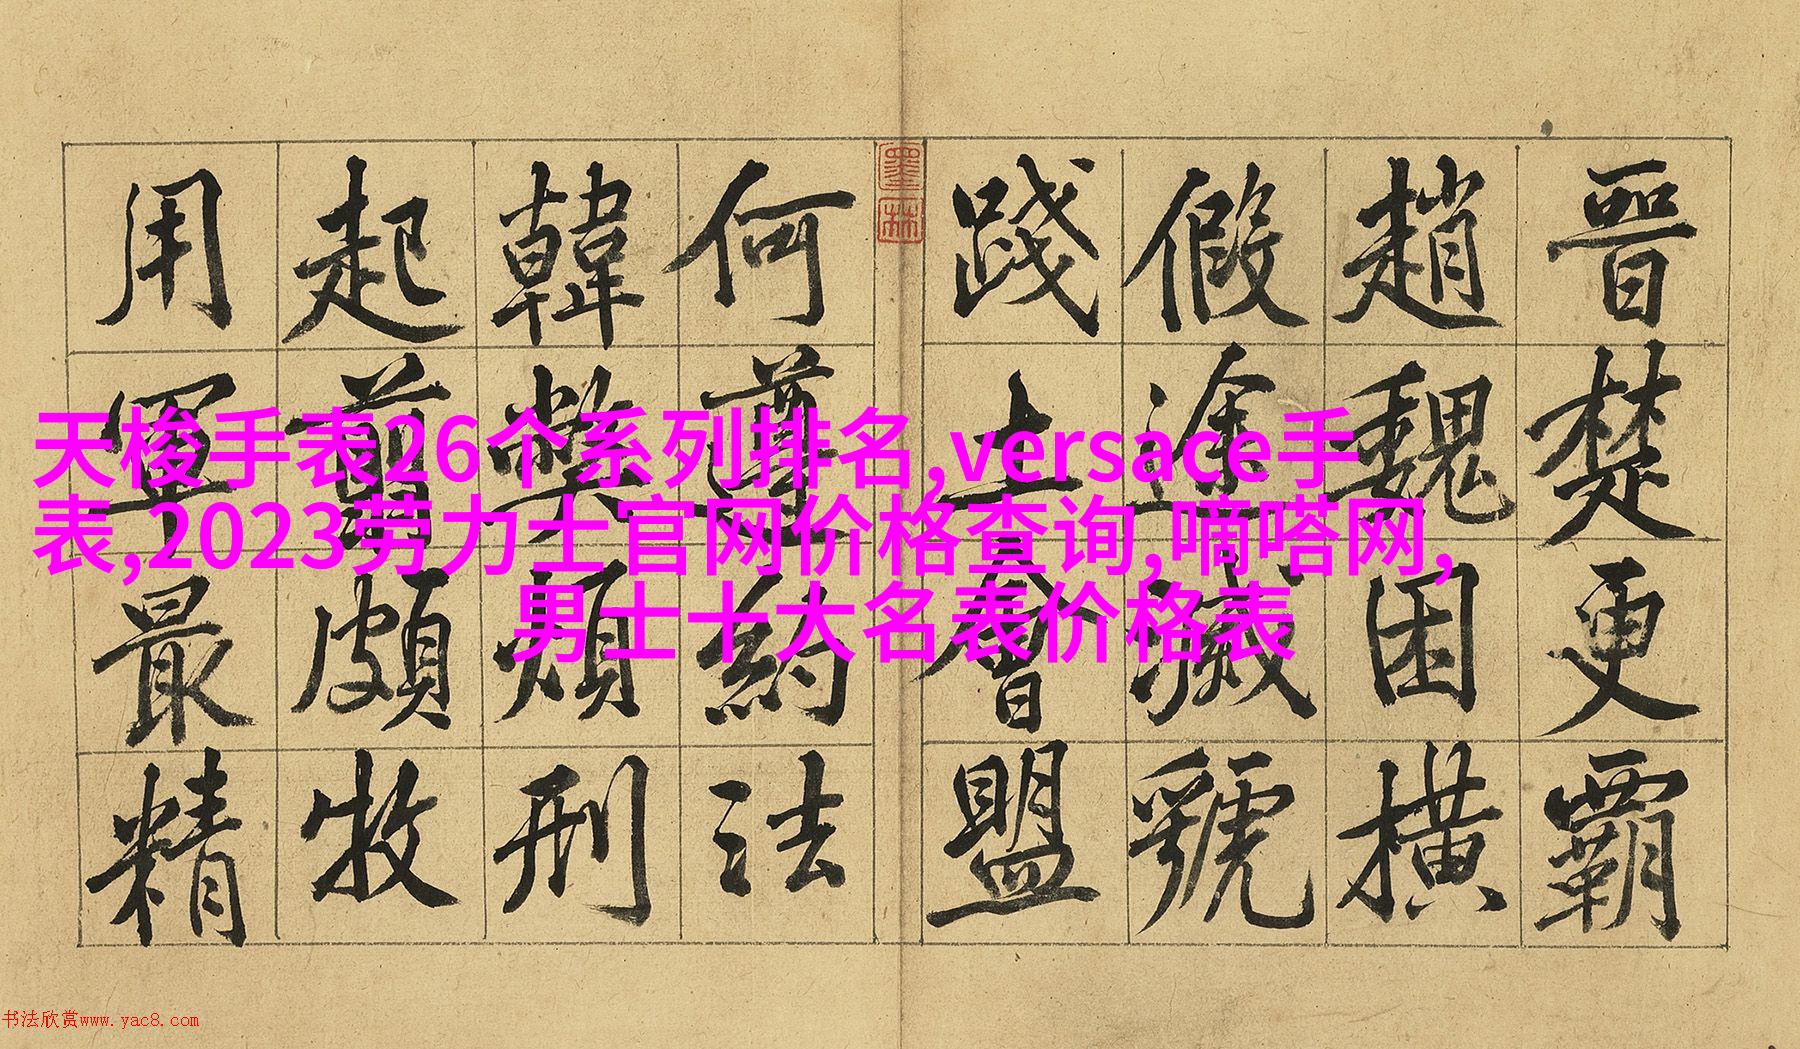 晉楚更霸
趙魏困橫
假途滅虢
踐土會盟
墨林
何遵約法
韓弊煩刑
起翦頗牧
用軍最精
天梭手表26个系列排名,versace手
表,2023劳力士官网价格查询,嘀嗒网,
男士十大名表价格表
书法欣赏www.yac8.com